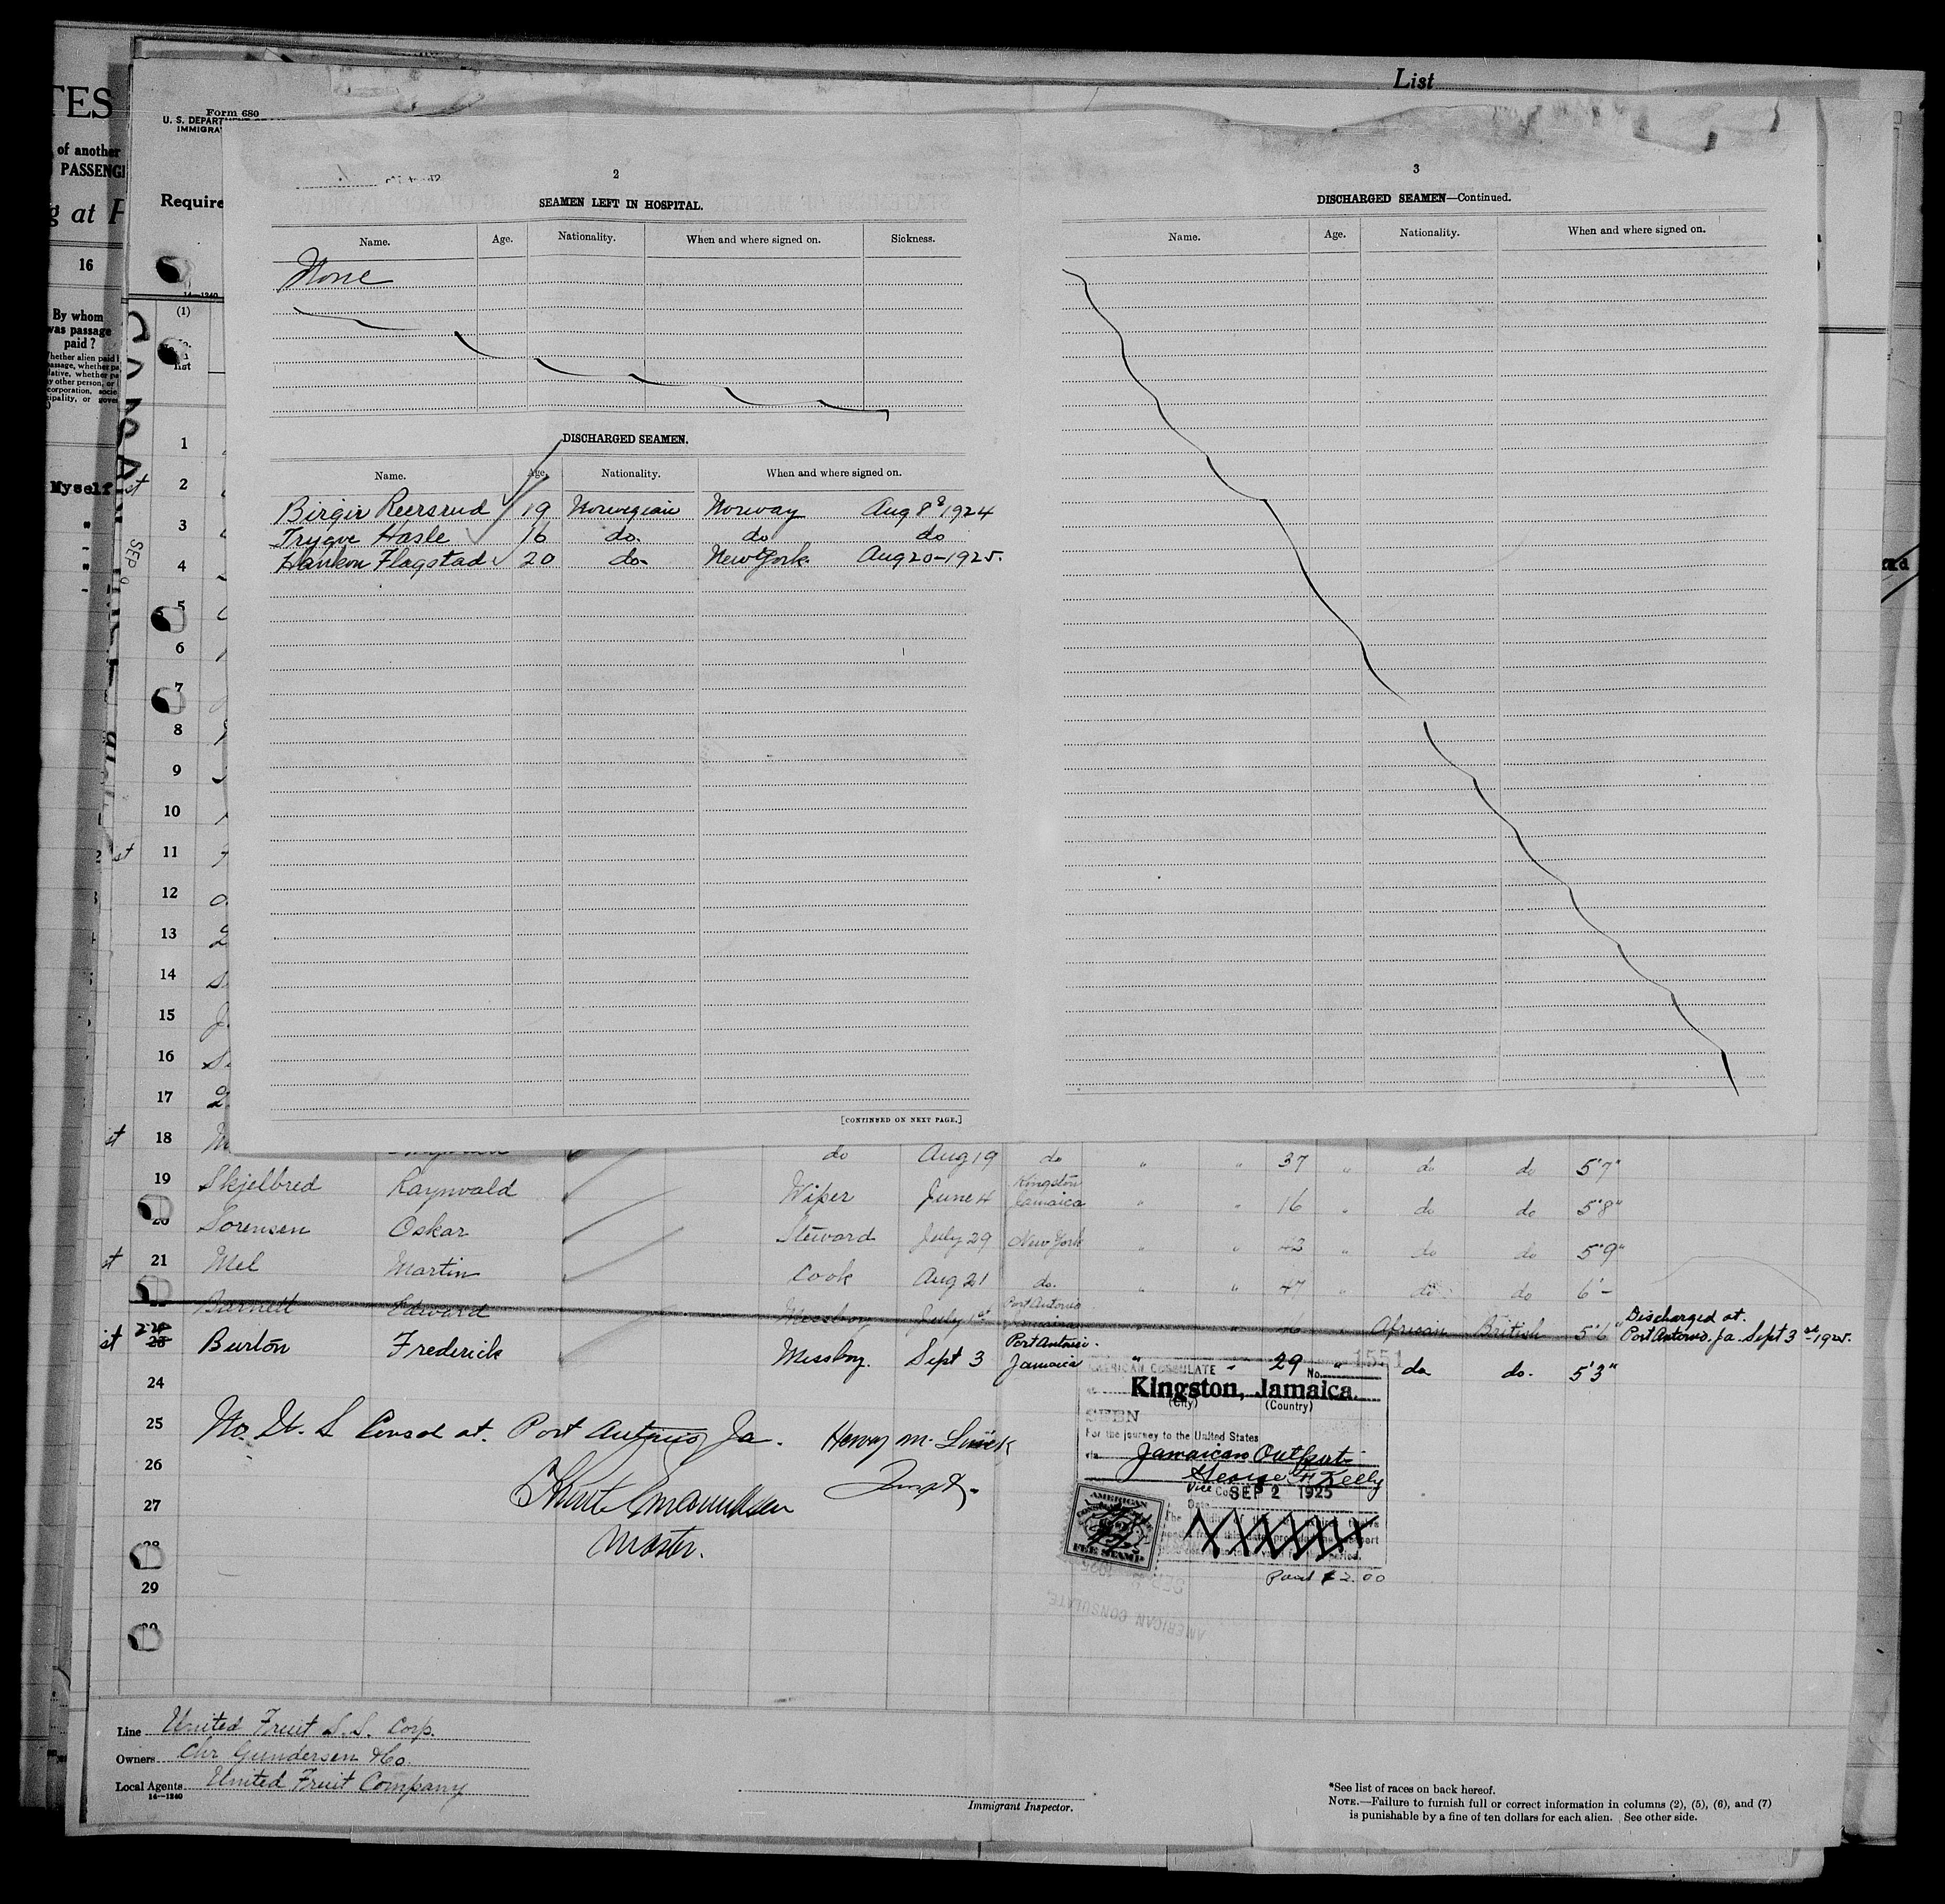 List
TES
of another
PASSENG
g at P
16
By whom
was passage
paid?
Myself
Form 680
U. S. DEPART
IMMIGRA
Require
14—1240
(1)
list
2
SEAMEN LEFT IN HOSPITAL.
Name. Age. Nationality. When and where signed on. Sickness.
None
DISCHARGED SEAMEN.
Name. Age. Nationality. When and where signed on.
Birger Reersrud 19 Norwegian Norway Aug 8 1924
Trygve Hasle 16 do. do do
Haakon Flagstad 20 do- New York. Aug 20-1925.
[CONTINUED ON NEXT PAGE.]
3
DISCHARGED SEAMEN—Continued.
Name. Age. Nationality. When and where signed on.
1
st 2
3
4
5
6
7
8
9
10
st 11
12
13
14
15
16
17
st 18 do Aug 19 do " " 37 " do do 5'7"
19 Skjelbred Raynvald Wiper June 4 Kingston Jamaica " " 16 " do do 5'8"
20 Sorensen Oskar Steward July 29 New York " " 42 " do do 5'9"
st 21 Mel Martin Cook Aug 21 do. " " 47 " do do 6'-
Barnett Edward Messboy July 1st Port Antonio Jamaica " " " African British 5'6" Discharged at. Port Antonio, Ja. Sept 3rd-1925.
st 23 Burton Frederick Messboy. Sept 3 Port Antonio. Jamaica " " 29 " do do. 5'3"
24
25 No. U. S Consul at. Port Antonio Ja. Henry M.
26
27 Master.
28
29
30
AMERICAN CONSULATE No. 1551
Kingston, Jamaica.
(City) (Country)
SEEN
For the journey to the United States
via Jamaican Outport
George H Kelly
Vice Co SEP 2 1925
Date
AMERICAN
FEE STAMP
Paid $2.00
AMERICAN CONSULATE
Line United Fruit S.S. Corp.
Owners Chr Gundersen & Co.
Local Agents United Fruit Company
14—1240
Immigrant Inspector.
*See list of races on back hereof.
NOTE.—Failure to furnish full or correct information in columns (2), (5), (6), and (7)
is punishable by a fine of ten dollars for each alien. See other side.